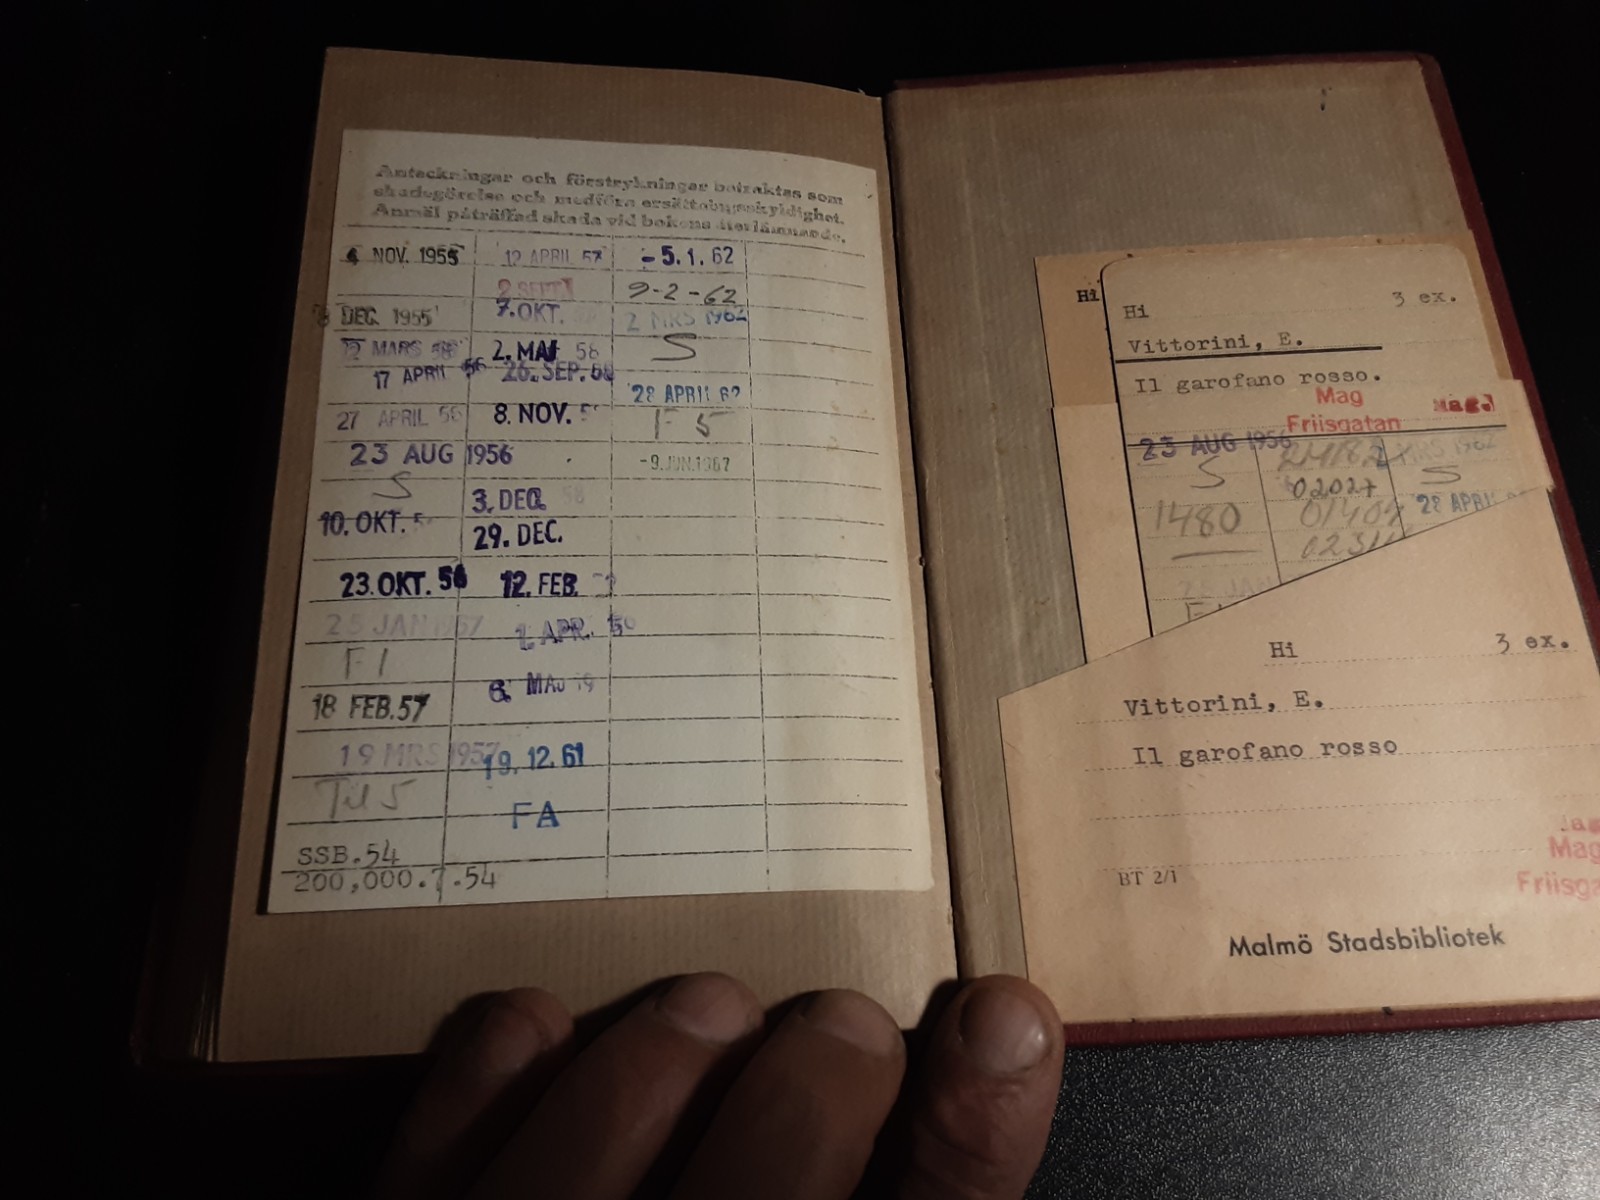 Anteckningar och förstrykningar betraktas som
skadegörelse och medföra ersättningsskyldighet.
Anmäl påträffad skada vid bokens återlämnande.
4 NOV. 1955
DEC. 1955
12 MARS 56
17 APRIL 56
27 APRIL 56
23 AUG 1956
S
10. OKT.
23. OKT. 56
25 JAN 1957
F 1
18 FEB. 57
19 MRS 1957
Till S
SSB. 54
200,000. 7. 54
12 APRIL 57
2 SEPT.
7. OKT.
2. MAJ 58
26. SEP. 58
8. NOV.
3. DEC. 58
29. DEC.
12. FEB.
1. APR.
6. MAJ
19. 12. 61
FA
- 5. 1. 62
9-2-62
2 MRS 1962
S
28 APRIL 62
F 5
-9. JUN. 1967
Hi
Hi 3 ex.
Vittorini, E.
Il garofano rosso.
Mag
Mag.
Friisgatan
23 AUG 1956
S
1480
02027
2 MRS 1962
S
28 APRI
Hi 3 ex.
Vittorini, E.
Il garofano rosso
Mag
Friisga
BT 2/1
Malmö Stadsbibliotek